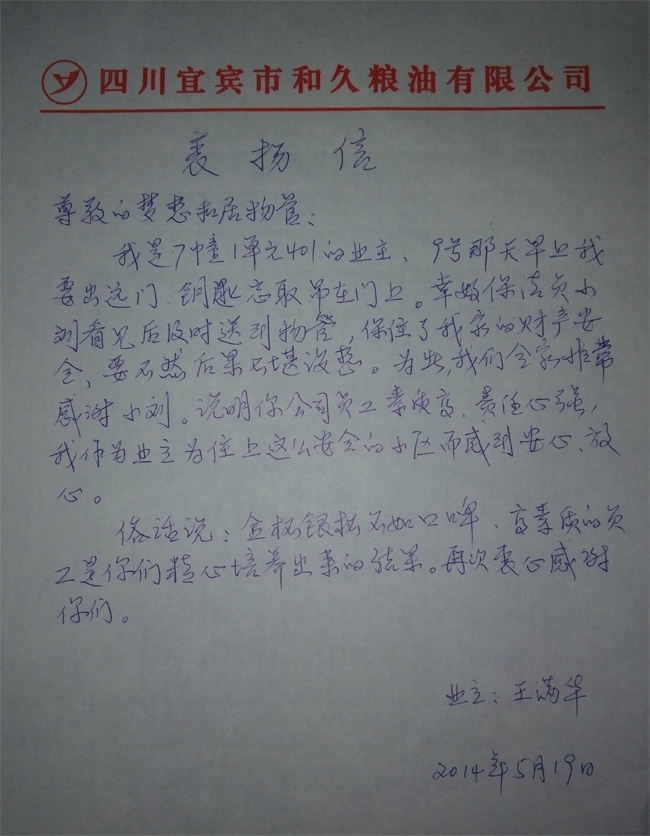 四川宜宾市和久粮油有限公司
表扬信
尊敬的梦想和居物管:
我是7幢1单元401的业主、9号那天早上我
要出远门、钥匙忘取吊在门上。幸好保洁员小
刘看见后及时送到物管，保住了我家的财产安
全，要不然后果不堪设想。为此,我们全家非常
感谢小刘。说明你公司员工素质高、责任心强,
我作为业主为住上这么安全的小区而感到安心、放
心。
俗话说：金杯银杯不如口啤、高素质的员
工是你们精心培养出来的结果。再次衷心感谢
你们。
业主：王满华
2014年5月19日